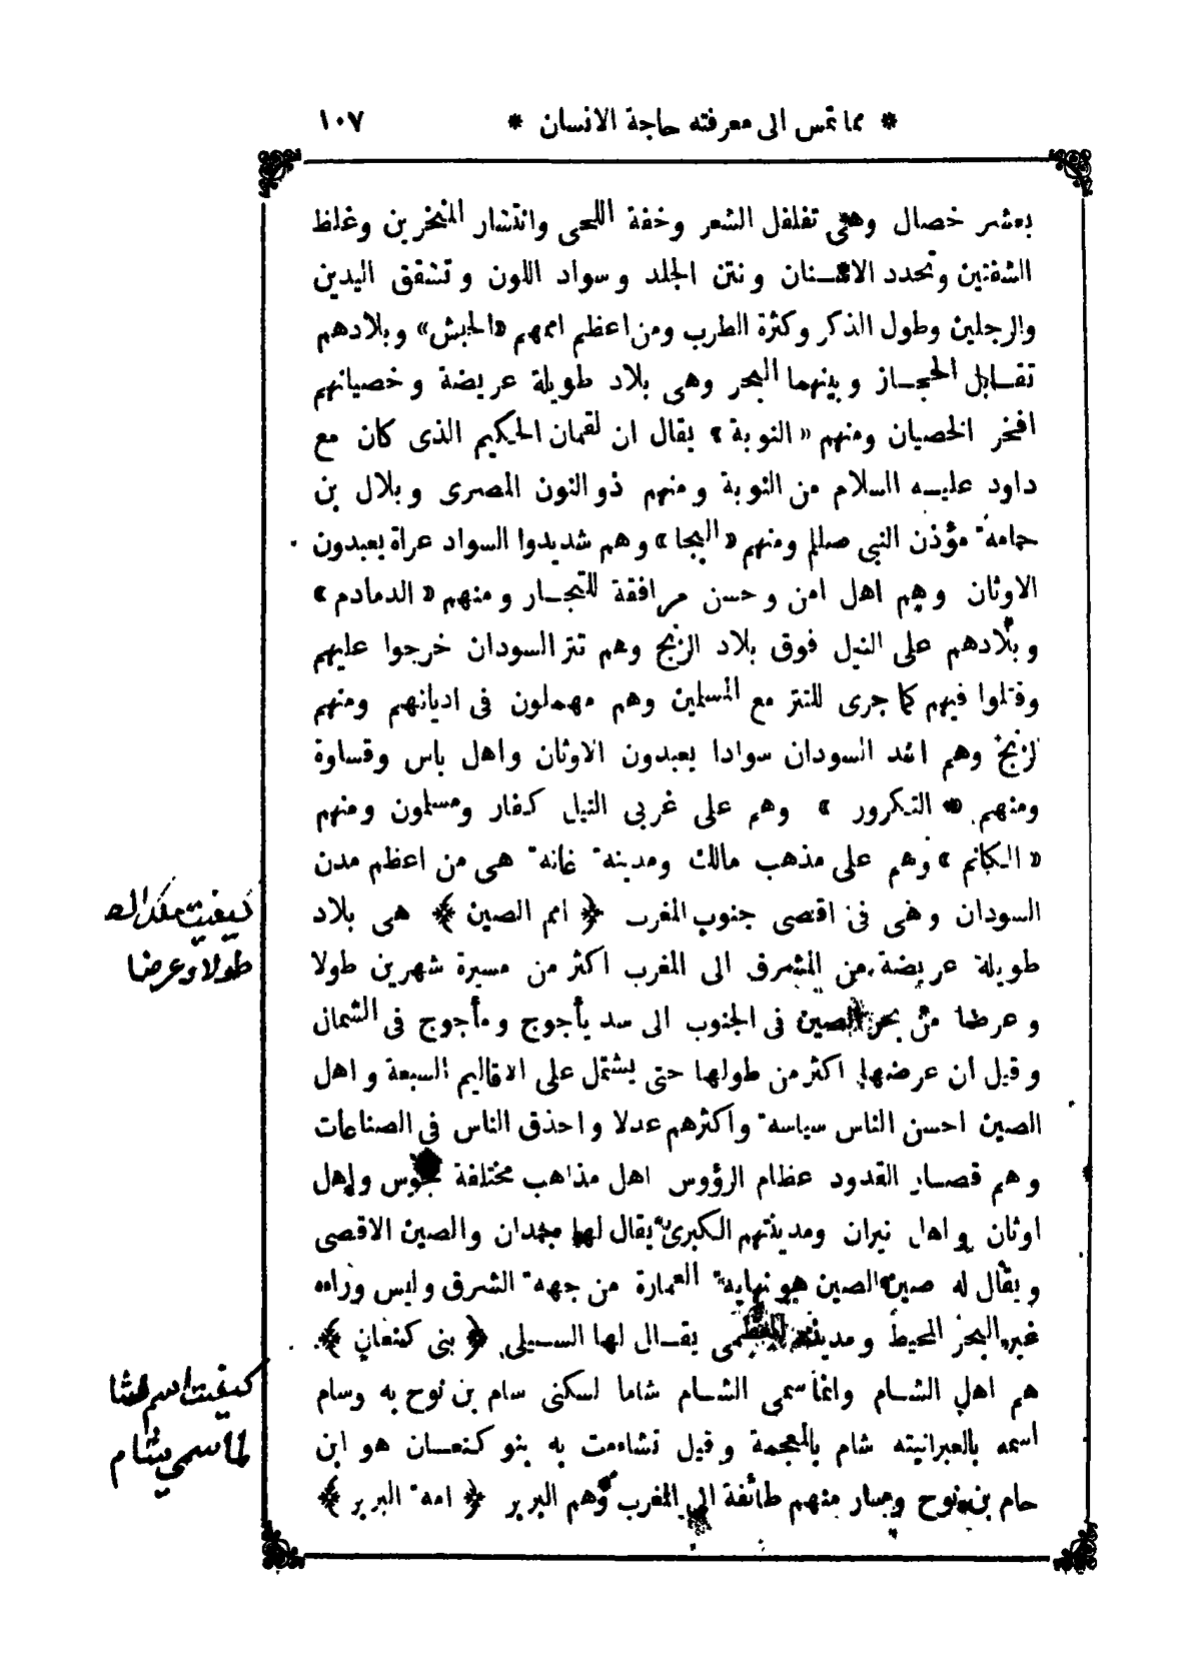 * مما تمس الى معرفته حاجة الانسان * ١٠٧
بعشر خصال وهى تفلفل الشعر وخفة اللحى وانتشار المنخرين وغلظ
الشفتين وتحدد الاسنان ونتن الجلد وسواد اللون وتشقق اليدين
والرجلين وطول الذكر وكثرة الطرب ومن اعظم اممهم «الحبش» وبلادهم
تقابل الحجاز وبينهما البحر وهى بلاد طويلة عريضة وخصيانهم
افخر الخصيان ومنهم «النوبة» يقال ان لقمان الحكيم الذى كان مع
داود عليه السلام من النوبة ومنهم ذو النون المصرى وبلال بن
حمامة مؤذن النبى صللم ومنهم «البجا» وهم شديدوا السواد عراة يعبدون
الاوثان وهم اهل امن وحسن مرافقة للتجار ومنهم «الدمادم»
وبلادهم على النيل فوق بلاد الزنج وهم تتر السودان خرجوا عليهم
وقتلوا فيهم كما جرى للتتر مع المسلمين وهم مهملون فى اديانهم ومنهم
لزنج وهم اشد السودان سوادا يعبدون الاوثان واهل باس وقساوة
ومنهم «التكرور» وهم على غربى النيل كفار ومسلمون ومنهم
«الكانم» وهم على مذهب مالك ومدينة غانة هى من اعظم مدن
السودان وهى فى اقصى جنوب المغرب ﴿ امم الصين ﴾ هى بلاد
طويلة عريضة من المشرق الى المغرب اكثر من مسيرة شهرين طولا
وعرضا من بحر الصين فى الجنوب الى سد يأجوج ومأجوج فى الشمال
وقيل ان عرضها اكثر من طولها حتى يشتمل على الاقاليم السبعة واهل
الصين احسن الناس سياسة واكثرهم عدلا واحذق الناس فى الصناعات
وهم قصار القدود عظام الرؤوس اهل مذاهب مختلفة مجوس واهل
اوثان واهل نيران ومدينتهم الكبرى يقال لها جمدان والصين الاقصى
ويقال له صين الصين هو نهاية العمارة من جهة الشرق وليس وراءه
غير البحر المحيط ومدينته العظمى يقال لها السيلى ﴿ بنى كنعان ﴾
هم اهل الشام وانما سمى الشام شاما لسكنى سام بن نوح به وسام
اسمه بالعبرانيته شام بالمعجمة وقيل تشاءمت به بنو كنعان هو ابن
حام بن نوح وصار منهم طائفة الى المغرب وهم البربر ﴿ امة البربر ﴾
كيفيت ملك الص
طولا وعرضا
كيفيت اسم
لما سمى بشام